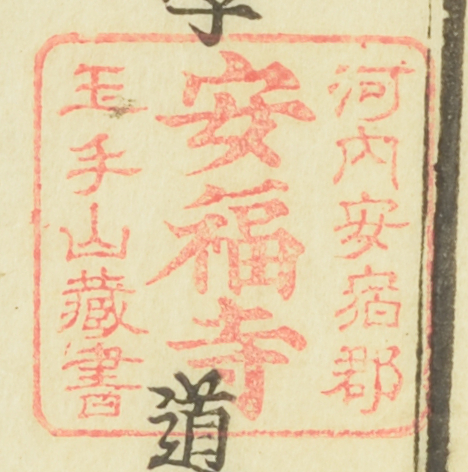 河内安宿郡
安福寺
玉手山藏書
道